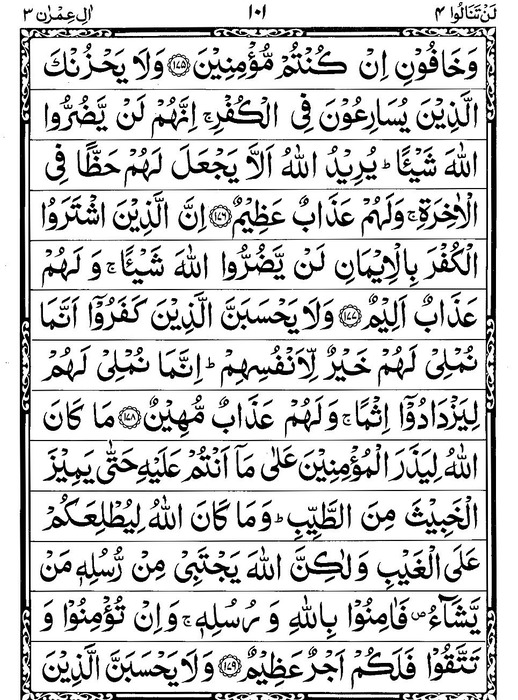 لَنْ تَنَالُوا ٤ ١٠١ اٰلِ عِمْرٰن ٣
وَخَافُوْنِ اِنْ كُنْتُمْ مُّؤْمِنِيْنَ ﴿١٧٥﴾ وَلَا يَحْزُنْكَ
الَّذِيْنَ يُسَارِعُوْنَ فِي الْكُفْرِ ۚ اِنَّهُمْ لَنْ يَّضُرُّوا
اللّٰهَ شَيْـًٔا ؕ يُرِيْدُ اللّٰهُ اَلَّا يَجْعَلَ لَهُمْ حَظًّا فِي
الْاٰخِرَةِ ۚ وَلَهُمْ عَذَابٌ عَظِيْمٌ ﴿١٧٦﴾ اِنَّ الَّذِيْنَ اشْتَرَوُا
الْكُفْرَ بِالْاِيْمَانِ لَنْ يَّضُرُّوا اللّٰهَ شَيْـًٔا ۚ وَ لَهُمْ
عَذَابٌ اَلِيْمٌ ﴿١٧٧﴾ وَلَا يَحْسَبَنَّ الَّذِيْنَ كَفَرُوْۤا اَنَّمَا
نُمْلِيْ لَهُمْ خَيْرٌ لِّاَنْفُسِهِمْ ؕ اِنَّمَا نُمْلِيْ لَهُمْ
لِيَزْدَادُوْۤا اِثْمًا ۚ وَلَهُمْ عَذَابٌ مُّهِيْنٌ ﴿١٧٨﴾ مَا كَانَ
اللّٰهُ لِيَذَرَ الْمُؤْمِنِيْنَ عَلٰى مَاۤ اَنْتُمْ عَلَيْهِ حَتّٰى يَمِيْزَ
الْخَبِيْثَ مِنَ الطَّيِّبِ ؕ وَمَا كَانَ اللّٰهُ لِيُطْلِعَكُمْ
عَلَى الْغَيْبِ وَلٰكِنَّ اللّٰهَ يَجْتَبِيْ مِنْ رُّسُلِهٖ مَنْ
يَّشَآءُ ۪ فَاٰمِنُوْا بِاللّٰهِ وَ رُسُلِهٖ ۚ وَاِنْ تُؤْمِنُوْا وَ
تَتَّقُوْا فَلَكُمْ اَجْرٌ عَظِيْمٌ ﴿١٧٩﴾ وَلَا يَحْسَبَنَّ الَّذِيْنَ